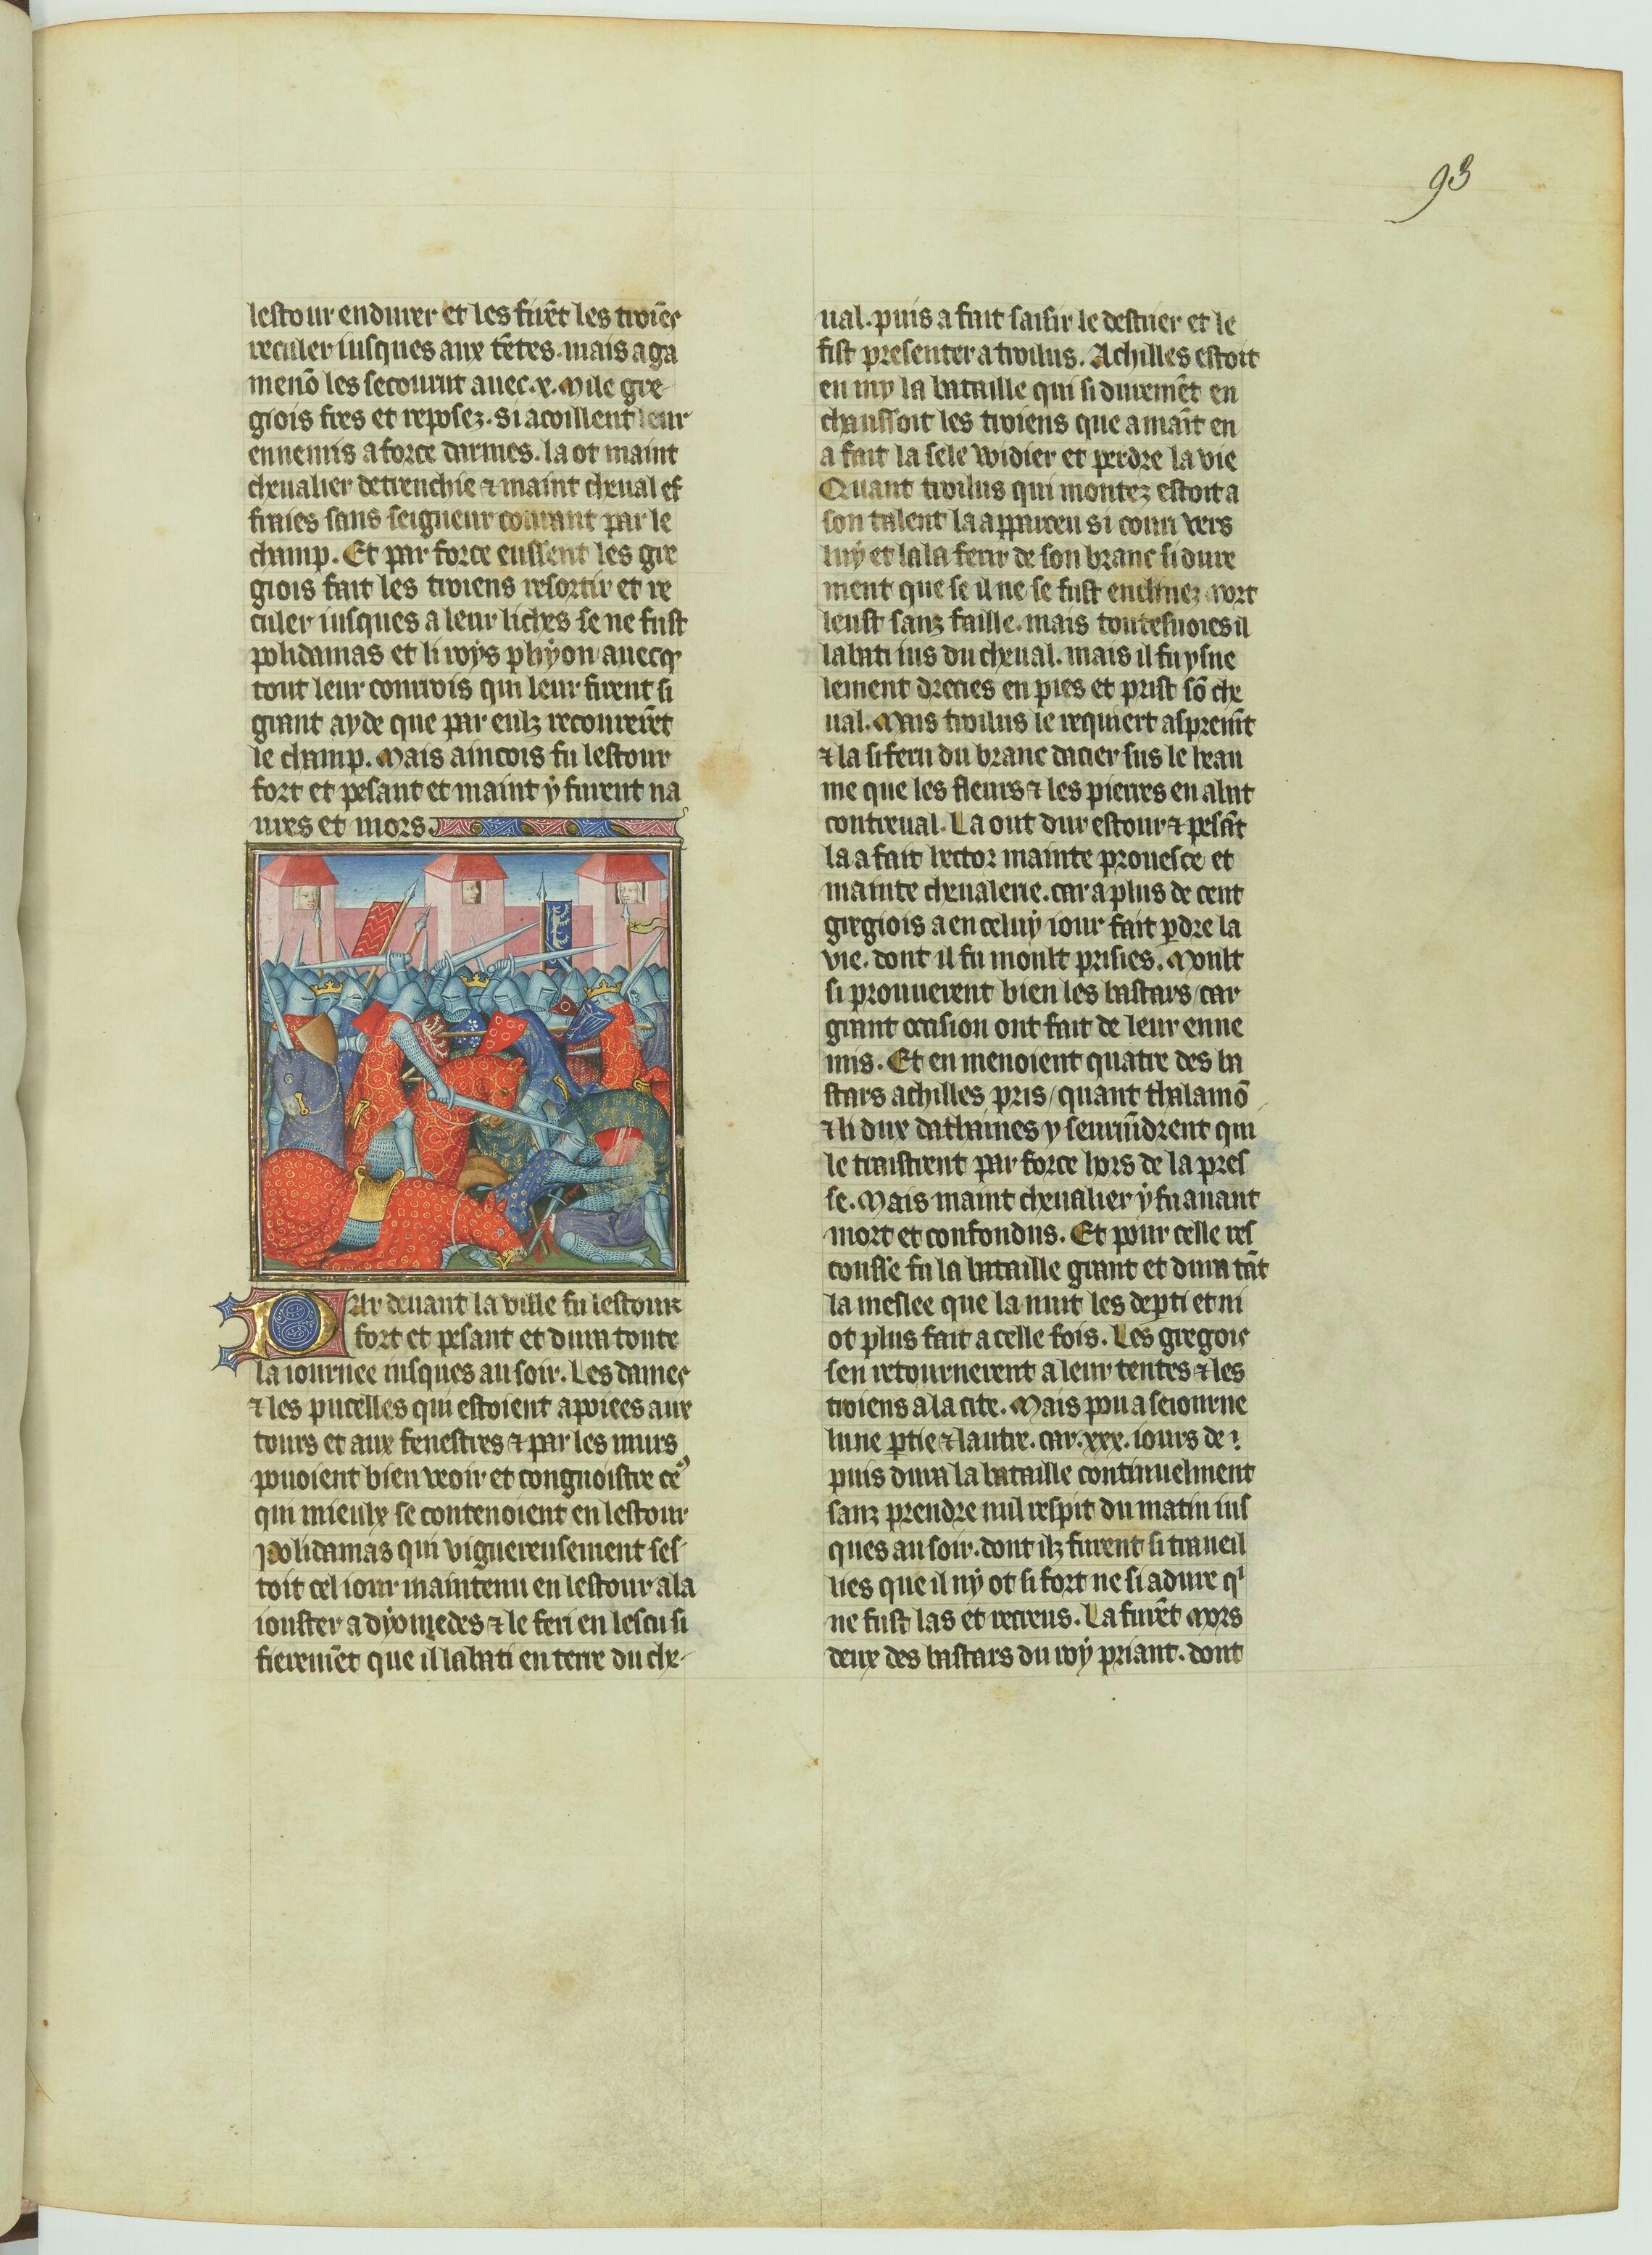 93
lestour endurer et les firēt les troiēs
reculer iusques aux tētes. mais aga
menō les secourut auec .x. Mile gre-
giois fres et reposez. si acoillent leur
ennemis a force darmes. la ot maint
cheualier detrenchie & maint cheual ef
fraies sans seigneur courant par le
champ. Et par force eussent les gre
giois fait les troiens resortir et re
culer iusques a leur liches se ne fust
polidamas et li roys phyon auecq
tout leur conrois qui leur firent si
grant ayde que par eulz recouurerēt
le champ. Mais aincois fu lestour
fort et pesant et maint y furent na
urés et mors.
Par deuant la ville fu lestour
fort et pesant et dura toute
la iournee iusques au soir. Les dames
& les pucelles qui estoient apoiees aux
tours et aux fenestres & par les murs
pouoient bien veoir et congnoistre ceꝰ
qui mieulx se contenoient en lestour
Polidamas qui viguereusement ses-
toit cel iour maintenu en lestour ala
iouster a dyomedes & le feri en lescu si
fieremēt que il labati en terre du che-
ual. puis a fait saisir le destrier et le
fist presenter a troilus. Achilles estoit
en my la bataille qui si duremēt en
chaussoit les troiens que a maīt en
a fait la sele widier et perdre la vie
Quant troilus qui montez estoit a
son talent la apparceu si couri vers
luy et la la ferir de son branc si dure
ment que se il ne se fust enclinez mort
leust sanz faille. mais toutesuoies il
labati ius du cheual. mais il fu ysne
lement drecies en pies et prist sō che
ual. Mais troilus le requiert aspremēt
& la si feru du branc dacier sus le heau
me que les fleurs & les pierres en abat
contreual. La out dur estour & pesāt
la a fait hector mainte prouesce et
mainte cheualerie. car a plus de cent
gregiois a en celuy iour fait pdre la
vie. dont il fu moult prisies. Moult
si prouuerent bien les bastars car
grant occision ont fait de leur enne
mis. Et en menoient quatre des ba
stars achilles pris / quant thalamō
& li dux dathaines y seuruīdrent qui
le traistrent par force hors de la pres
se. Mais maint cheualier y fu auant
mort et confondus. Et pour celle res
cousse fu la bataille grant et dura tāt
la meslee que la nuit les depti et ni
ot plus fait a celle fois. Les gregois
sen retournerent a leur tentes & les
troiens a la cite. Mais pou a seiourne
lune ptie & lautre. car .xxx. iours de
puis dura la bataille continuelment
sanz prendre nul respit du matin ius
ques au soir. dont ilz furent si traueil
lies que il ny ot si fort ne si adure qⁱ
ne fust las et recreus. La furēt mors
deux des bastars du roy priant. dont